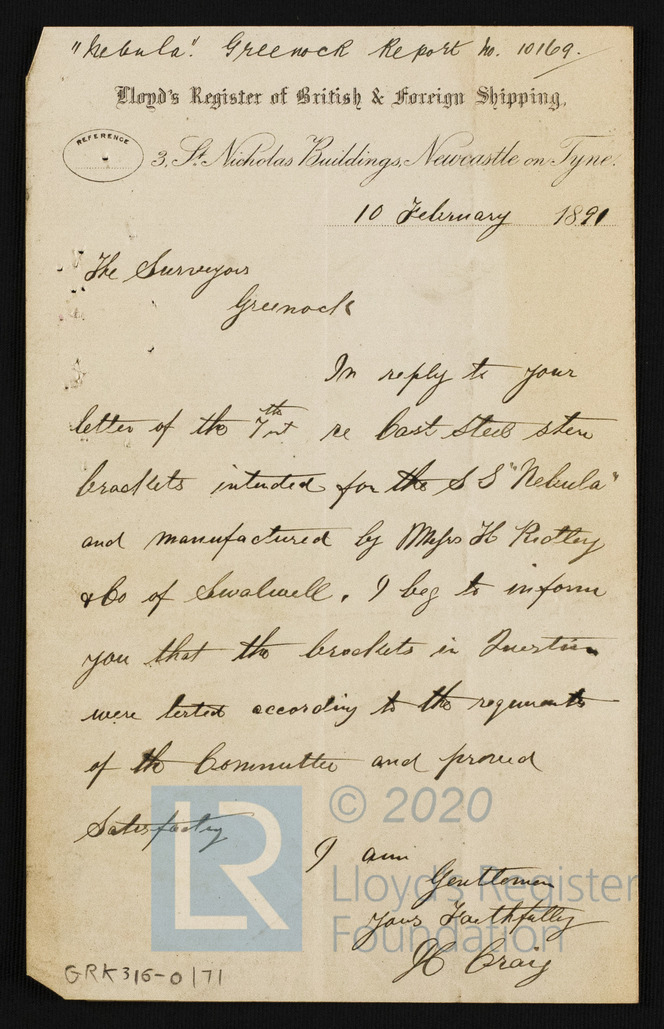 "Nebula". Greenock Report No. 10169.
Lloyd's Register of British & Foreign Shipping,
REFERENCE
3, St. Nicholas Buildings, Newcastle on Tyne.
10 February 1891
The Surveyors
Greenock
In reply to your
letter of the 7th inst re Cast Steel stern
brackets intended for the SS "Nebula"
and manufactured by Messrs H Ridley
& Co of Swalwell, I beg to inform
you that the brackets in Question
were tested according to the requirments
of the Committee and proved
Satisfactory
I am
Gentlemen
Yours Faithfully
Craig
GRK316-0171
LR
© 2020
Lloyd's Register
Foundation